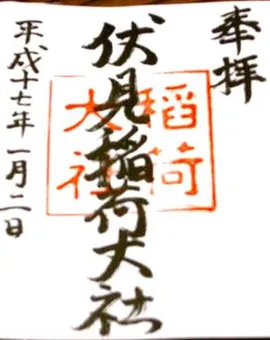 奉拝
伏見稲荷大社
稲荷
大社
平成十七年一月二日